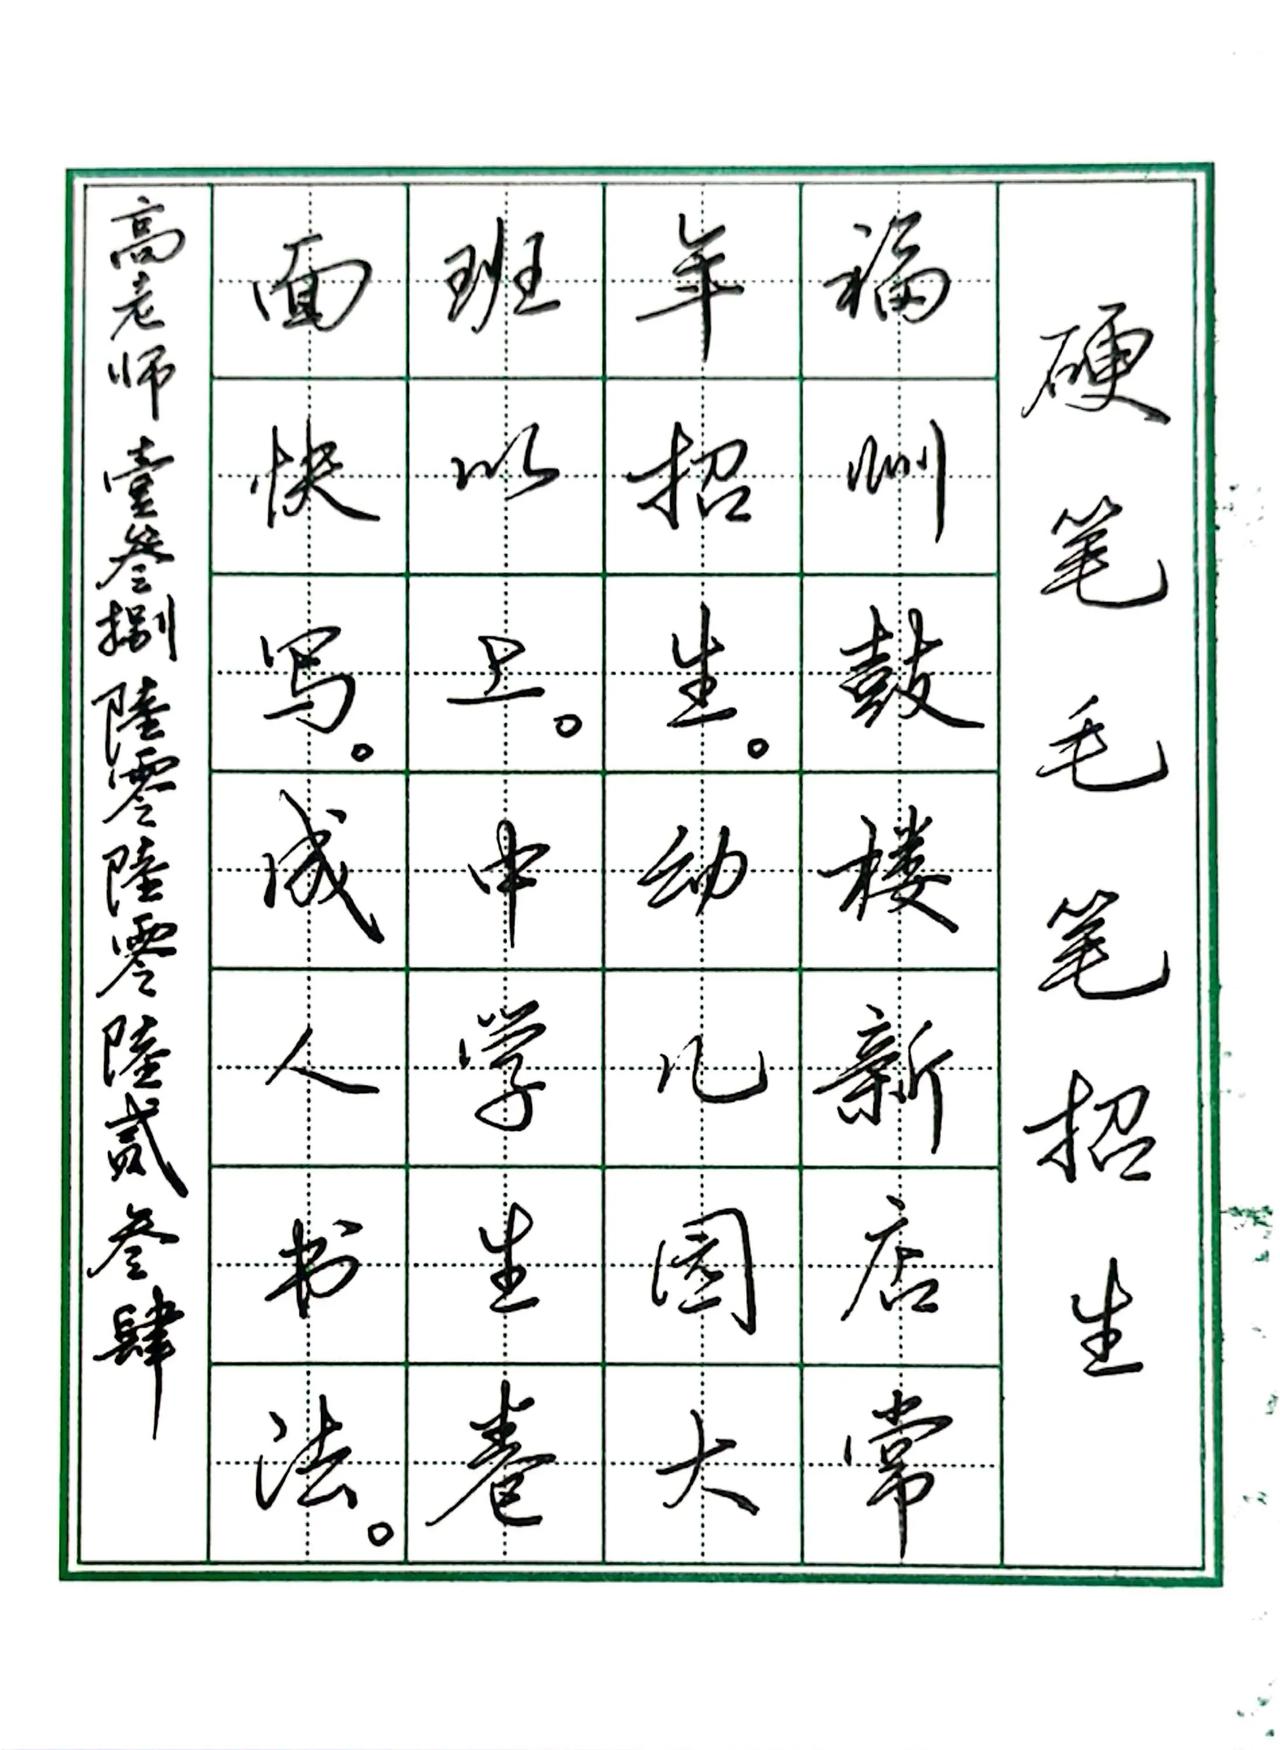 硬笔毛笔招生
福州鼓楼新店常
年招生。幼儿园大
班以上。中学生卷
面快写。成人书法。
高老师壹叁捌陸零陸零陸贰叁肆